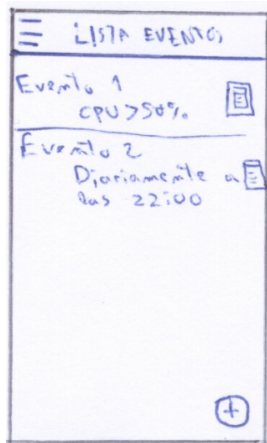 LISTA EVENTOS
Evento 1
CPU>50%
Evento 2
Diariamente a
las 22:00
+